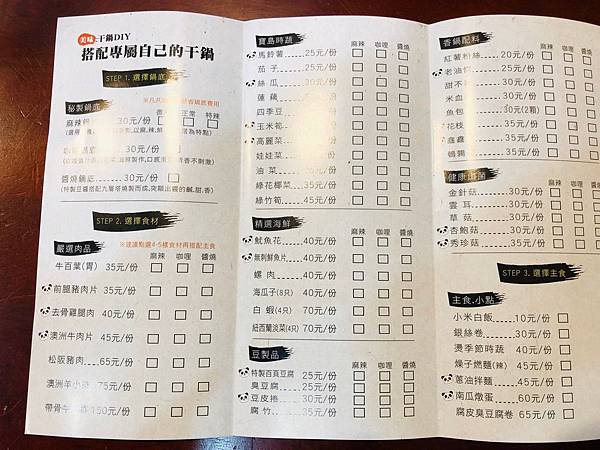 美味 干鍋DIY
搭配專屬自己的干鍋
STEP 1. 選擇鍋底
秘製鍋底
麻辣 30元/份
30元/份
醬燒鍋底 30元/份
(特製豆醬搭配九層塔燒製而成,突顯出醬的鹹,甜,香)
STEP 2. 選擇食材
嚴選肉品
※建議點選4-5樣食材再搭配主食
麻辣 咖哩 醬燒
牛百葉(胃) 35元/份
前腿豬肉片 35元/份
去骨雞腿肉 40元/份
澳洲牛肉片 45元/份
松阪豬肉 65元/份
澳洲羊小 75元/份
帶骨牛 150元/份
寶島時蔬
麻辣 咖哩 醬燒
馬鈴薯 25元/份
茄子 25元/份
絲瓜 30元/份
蓮藕 30元/份
四季豆 30元/份
玉米筍 30元/份
高麗菜 30元/份
娃娃菜 30元/份
油菜 35元/份
綠花椰菜 35元/份
綠竹筍 45元/份
精選海鮮
魷魚花 40元/份
無刺鮮魚片 40元/份
螺肉 40元/份
海瓜子(8只) 40元/份
白蝦(4只) 70元/份
紐西蘭淡菜(4只) 70元/份
豆製品
麻辣 咖哩 醬燒
特製百頁豆腐 25元/份
臭豆腐 25元/份
豆皮捲 30元/份
腐竹 35元/份
香鍋配料
麻辣 咖哩 醬燒
紅薯粉絲 20元/份
老油條 25元/份
甜不 30元/份
米血 30元/份
魚包 30元(2顆)
花枝 35元/份
35元/份
鵪鶉 35元/份
健康 菌
麻辣 咖哩 醬燒
金針菇 30元/份
雲耳 30元/份
草菇 30元/份
杏鮑菇 30元/份
秀珍菇 35元/份
STEP 3. 選擇主食
主食.小點
小米白飯 10元/份
銀絲卷 30元/份
燙季節時蔬 40元/份
燥子燃麵(辣) 45元/份
蔥油拌麵 45元/份
南瓜燉蛋 60元/份
腐皮臭豆腐卷 65元/份